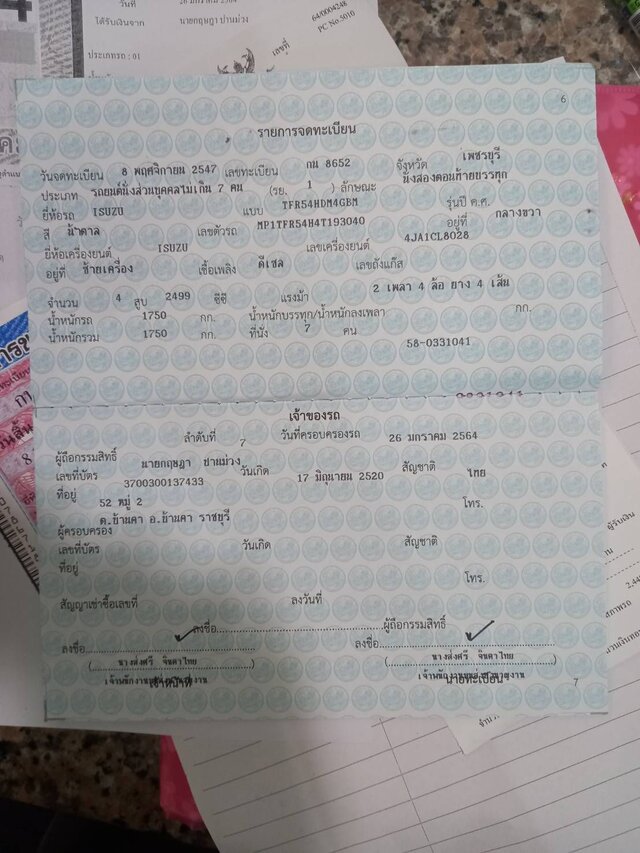 วันที่ 26 มกราคม 2564
ได้รับเงินจาก นายกฤษฎา ปานม่วง
64/0004248
PC No.5010
เลขที่
ประเภทรถ : 01
6
รายการจดทะเบียน
วันจดทะเบียน 8 พฤศจิกายน 2547 เลขทะเบียน กน 8652 จังหวัด เพชรบุรี
ประเภท รถยนต์นั่งส่วนบุคคลไม่เกิน 7 คน (รย. 1 ) ลักษณะ นั่งสองตอนท้ายบรรทุก
ยี่ห้อรถ ISUZU แบบ TFR54HDM4GBM รุ่นปี ค.ศ.
สี น้ำตาล เลขตัวรถ MP1TFR54H4T193040 อยู่ที่ กลางขวา
ยี่ห้อเครื่องยนต์ ISUZU เลขเครื่องยนต์ 4JA1CL8028
อยู่ที่ ซ้ายเครื่อง เชื้อเพลิง ดีเซล เลขถังแก๊ส
จำนวน 4 สูบ 2499 ซีซี แรงม้า 2 เพลา 4 ล้อ ยาง 4 เส้น
น้ำหนักรถ 1750 กก. น้ำหนักบรรทุก/น้ำหนักลงเพลา กก.
น้ำหนักรวม 1750 กก. ที่นั่ง 7 คน
58-0331041
เจ้าของรถ
ลำดับที่ 7 วันที่ครอบครองรถ 26 มกราคม 2564
ผู้ถือกรรมสิทธิ์ นายกฤษฎา ปานม่วง
เลขที่บัตร 3700300137433 วันเกิด 17 มิถุนายน 2520 สัญชาติ ไทย
ที่อยู่ 52 หมู่ 2 โทร.
ต.บ้านคา อ.บ้านคา ราชบุรี
ผู้ครอบครอง
เลขที่บัตร วันเกิด สัญชาติ
ที่อยู่
โทร.
สัญญาเช่าซื้อเลขที่ ลงวันที่
ลงชื่อ ผู้ถือกรรมสิทธิ์
ลงชื่อ ลงชื่อ
( นางส่งศรี จินดาไทย ) ( นางส่งศรี จินดาไทย )
เจ้าหน้าที่ นายทะเบียน
7
ผู้รับเงิน